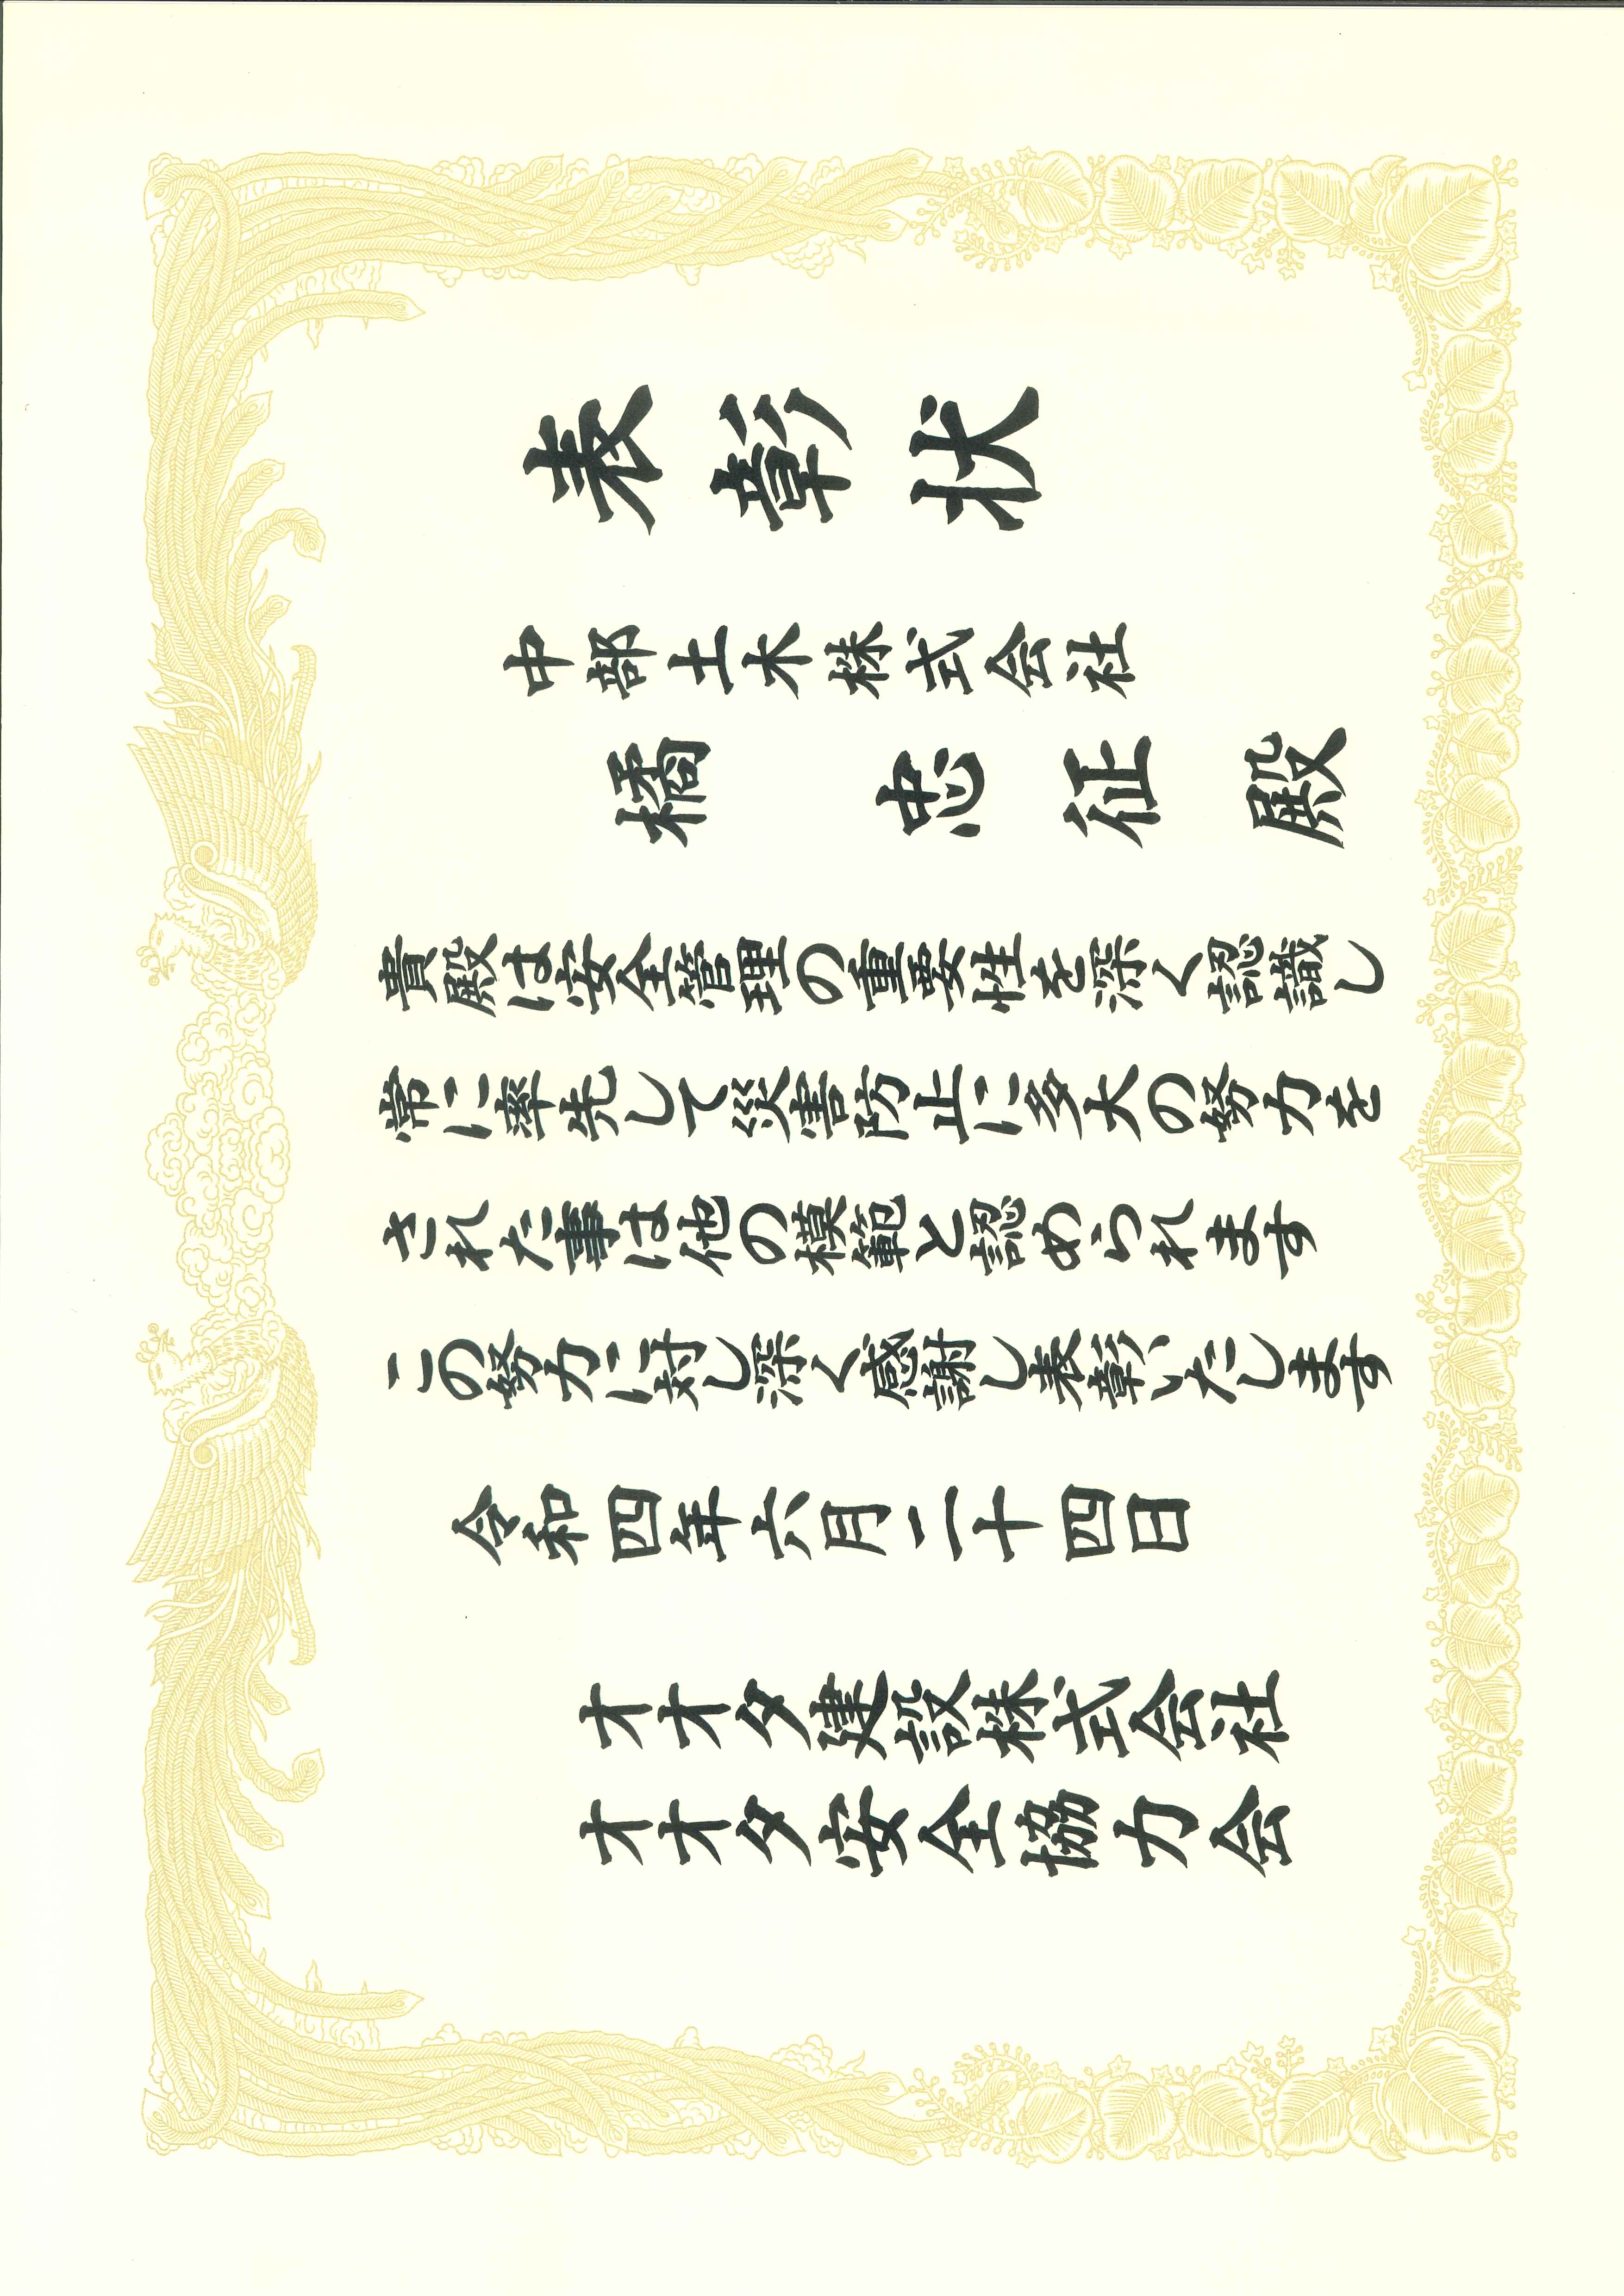 表彰状
中部土木株式会社
橘 忠征 殿
貴殿は安全管理の重要性を深く認識し
常に率先して災害防止に多大の努力を
された事は他の模範と認められます
この努力に対し深く感謝し表彰いたします
令和四年六月二十四日
オオタ建設株式会社
オオタ安全協力会